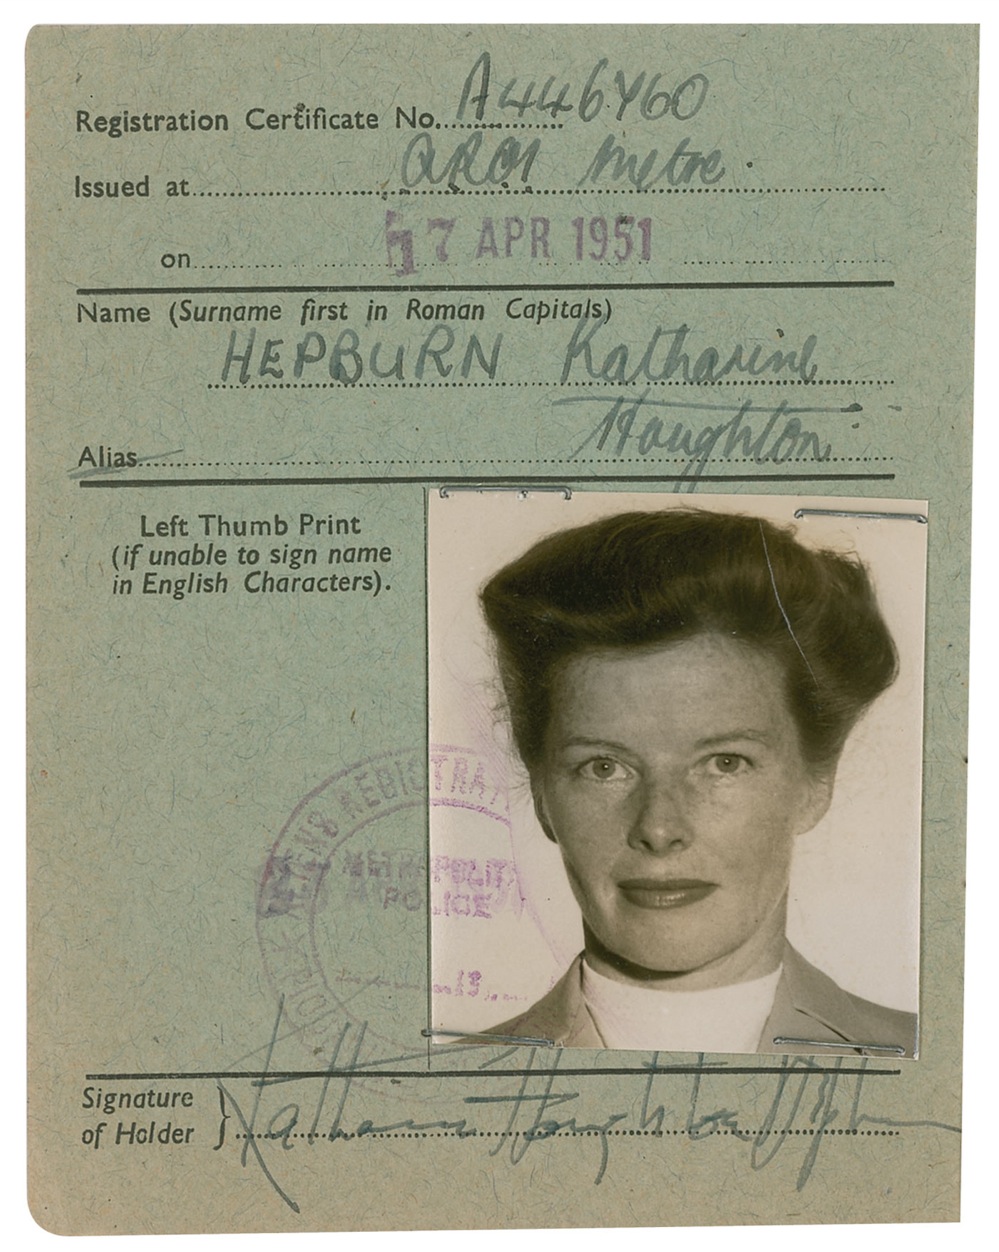 Registration Certificate No. A446460
Issued at AROI Metro.
on 17 APR 1951
Name (Surname first in Roman Capitals)
HEPBURN Katharine
Houghton
Alias
Left Thumb Print
(if unable to sign name
in English Characters).
METROPOLIT
POLICE
Signature
of Holder } Katharine Houghton Hepburn